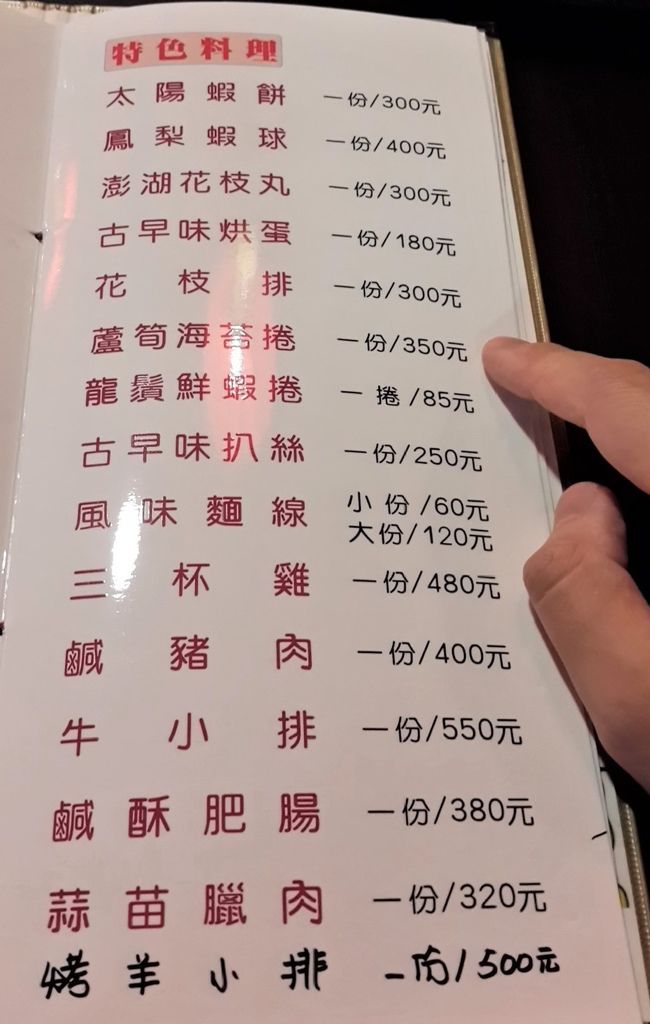 特色料理
太陽蝦餅 一份/300元
鳳梨蝦球 一份/400元
澎湖花枝丸 一份/300元
古早味烘蛋 一份/180元
花枝排 一份/300元
蘆筍海苔捲 一份/350元
龍鬚鮮蝦捲 一捲/85元
古早味扒絲 一份/250元
風味麵線 小份/60元
大份/120元
三杯雞 一份/480元
鹹豬肉 一份/400元
牛小排 一份/550元
鹹酥肥腸 一份/380元
蒜苗臘肉 一份/320元
烤羊小排 一份/500元